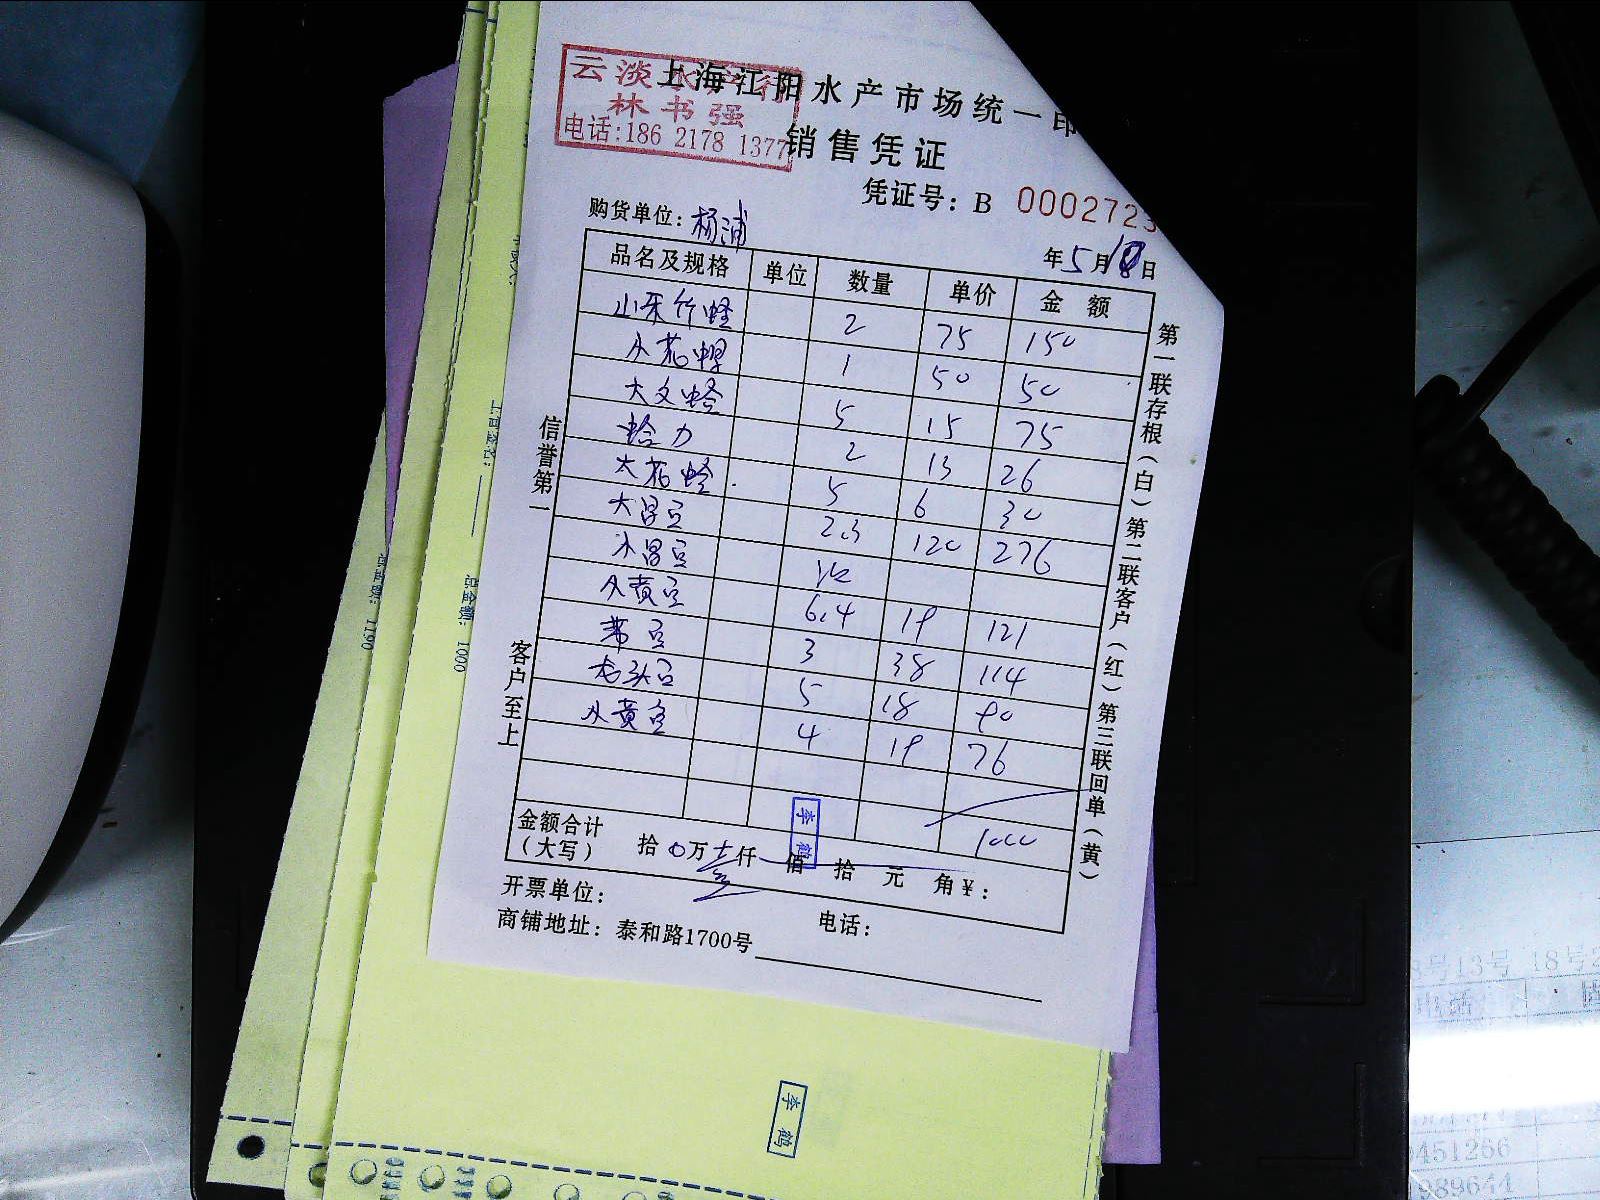 云淡水产行
林书强
电话:186 2178 1377
上海江阳水产市场统一印
销售凭证
凭证号: B 0002723
购货单位: 杨浦
年5月10日
品名及规格 单位 数量 单价 金额
竹蛏 2 75 150
1 50 50
大文蛤 5 15 75
蛤力 2 13 26
大花蛤 5 6 30
大昌豆 2.3 120 276
小昌豆
小黄豆 6.4 19 121
3 38 114
龙头豆 5 18 90
小黄豆 4 19 76
1000
金额合计
(大写) 拾0万壹仟 佰 拾 元 角¥:
李鹤
开票单位:
电话:
商铺地址: 泰和路1700号
信誉第一
客户至上
第一联存根(白)第二联客户(红)第三联回单(黄)
总金额: 1190
总金额: 1000
李鹤
8号13号 18号2
电话
451266
989644